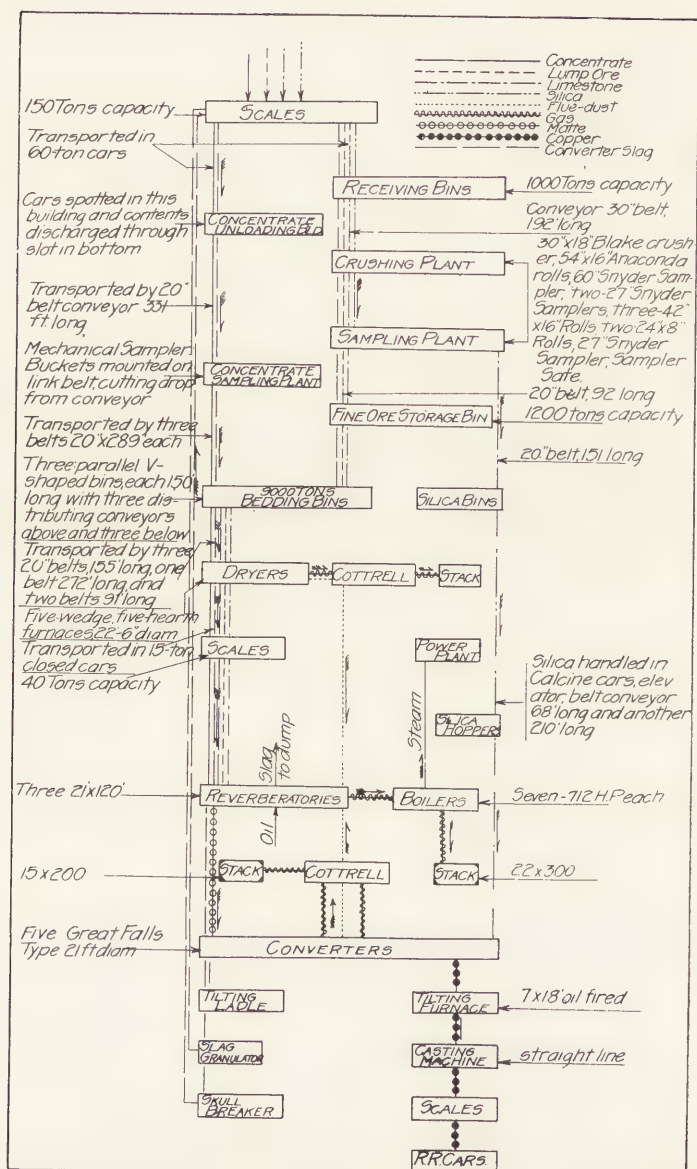 Concentrate
Lump Ore
Limestone
Silica
Flue-dust
Gas
Matte
Copper
Converter Slag
150 Tons capacity
SCALES
Transported in
60-ton cars
RECEIVING BINS
1000 Tons capacity
Cars spotted in this
building and contents
discharged through
slot in bottom
CONCENTRATE
UNLOADING BLD
Conveyor 30" belt,
192' long
CRUSHING PLANT
30"x18" Blake crush-
er, 54"x16" Anaconda
rolls, 60" Snyder Sam-
pler, two-27" Snyder
Samplers, three-42"
x16" Rolls, two 24"x8"
Rolls, 27" Snyder
Sampler, Sampler
Safe.
Transported by 20"
belt conveyor 331
ft long,
SAMPLING PLANT
Mechanical Sampler.
Buckets mounted on
link belt, cutting drop
from conveyor
CONCENTRATE
SAMPLING PLANT
20" belt, 92 long
FINE ORE STORAGE BIN
1200 tons capacity
Transported by three
belts 20"x289' each
20" belt, 151 long
Three parallel V-
shaped bins, each 150'
long with three dis-
tributing conveyors
above and three below
9000 TONS
BEDDING BINS
SILICA BINS
Transported by three
20" belts, 155' long, one
belt 272' long, and
two belts 91' long
DRYERS
COTTRELL
STACK
Five-wedge, five-hearth
furnaces, 22'-6" diam
Transported in 15-ton
closed cars
40 Tons capacity
SCALES
POWER
PLANT
Silica handled in
Calcine cars, elev
ator, belt conveyor
68' long and another
210' long
SILICA
HOPPER
Steam
Slag
to dump
Three 21'x120'
REVERBERATORIES
BOILERS
Seven-712 H.P. each
Oil
15 x 200
STACK
COTTRELL
STACK
22 x 300
Five Great Falls
Type 21 ft diam
CONVERTERS
TILTING
LADLE
TILTING
FURNACE
7 x 18' oil fired
SLAG
GRANULATOR
CASTING
MACHINE
straight line
SKULL
BREAKER
SCALES
R.R. CARS.